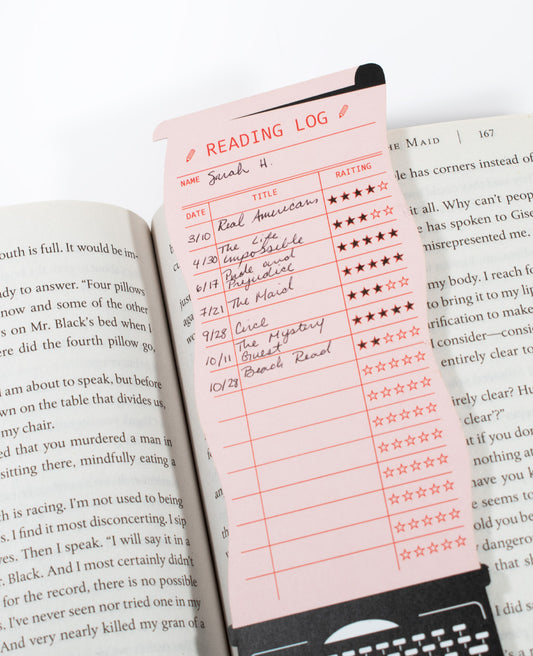 READING LOG
NAME Sarah H.
DATE TITLE RAITING
3/10 Real Americans ★★★★☆
4/30 The Life
Impossible ★★★☆☆
6/17 Pride and
Prejudice ★★★★★
7/21 The Maid ★★★★★
9/28 Circe ★★★☆☆
10/11 The Mystery
Guest ★★★★★
10/28 Beach Read ★★☆☆☆
☆☆☆☆☆
☆☆☆☆☆
☆☆☆☆☆
☆☆☆☆☆
☆☆☆☆☆
☆☆☆☆☆
☆☆☆☆☆
outh is full. It would be im-
dy to answer. "Four pillows
now and some of the other
s on Mr. Black's bed when I
ere did the fourth pillow go,
I am about to speak, but before
own on the table that divides us,
my chair.
ed that you murdered a man in
sitting there, mindfully eating a
h is racing. I'm not used to being
s. I find it most disconcerting. I sip
yes. Then I speak. "I will say it in a
r. Black. And I most certainly didn't
for the record, there is no possible
s. I've never seen nor tried one in my
And very nearly killed my gran of a
HE MAID | 167
le has corners instead of
it all. Why can't peop
has spoken to Gise
misrepresented me.
my body. I reach fo
to bring it to my lip
rification to make
I consider—consi
entirely clear to
irely clear? Hu
clear?'"
t if you don
nothing a
ave you k
e seems to
old you be
dangerous
the same
I did sa